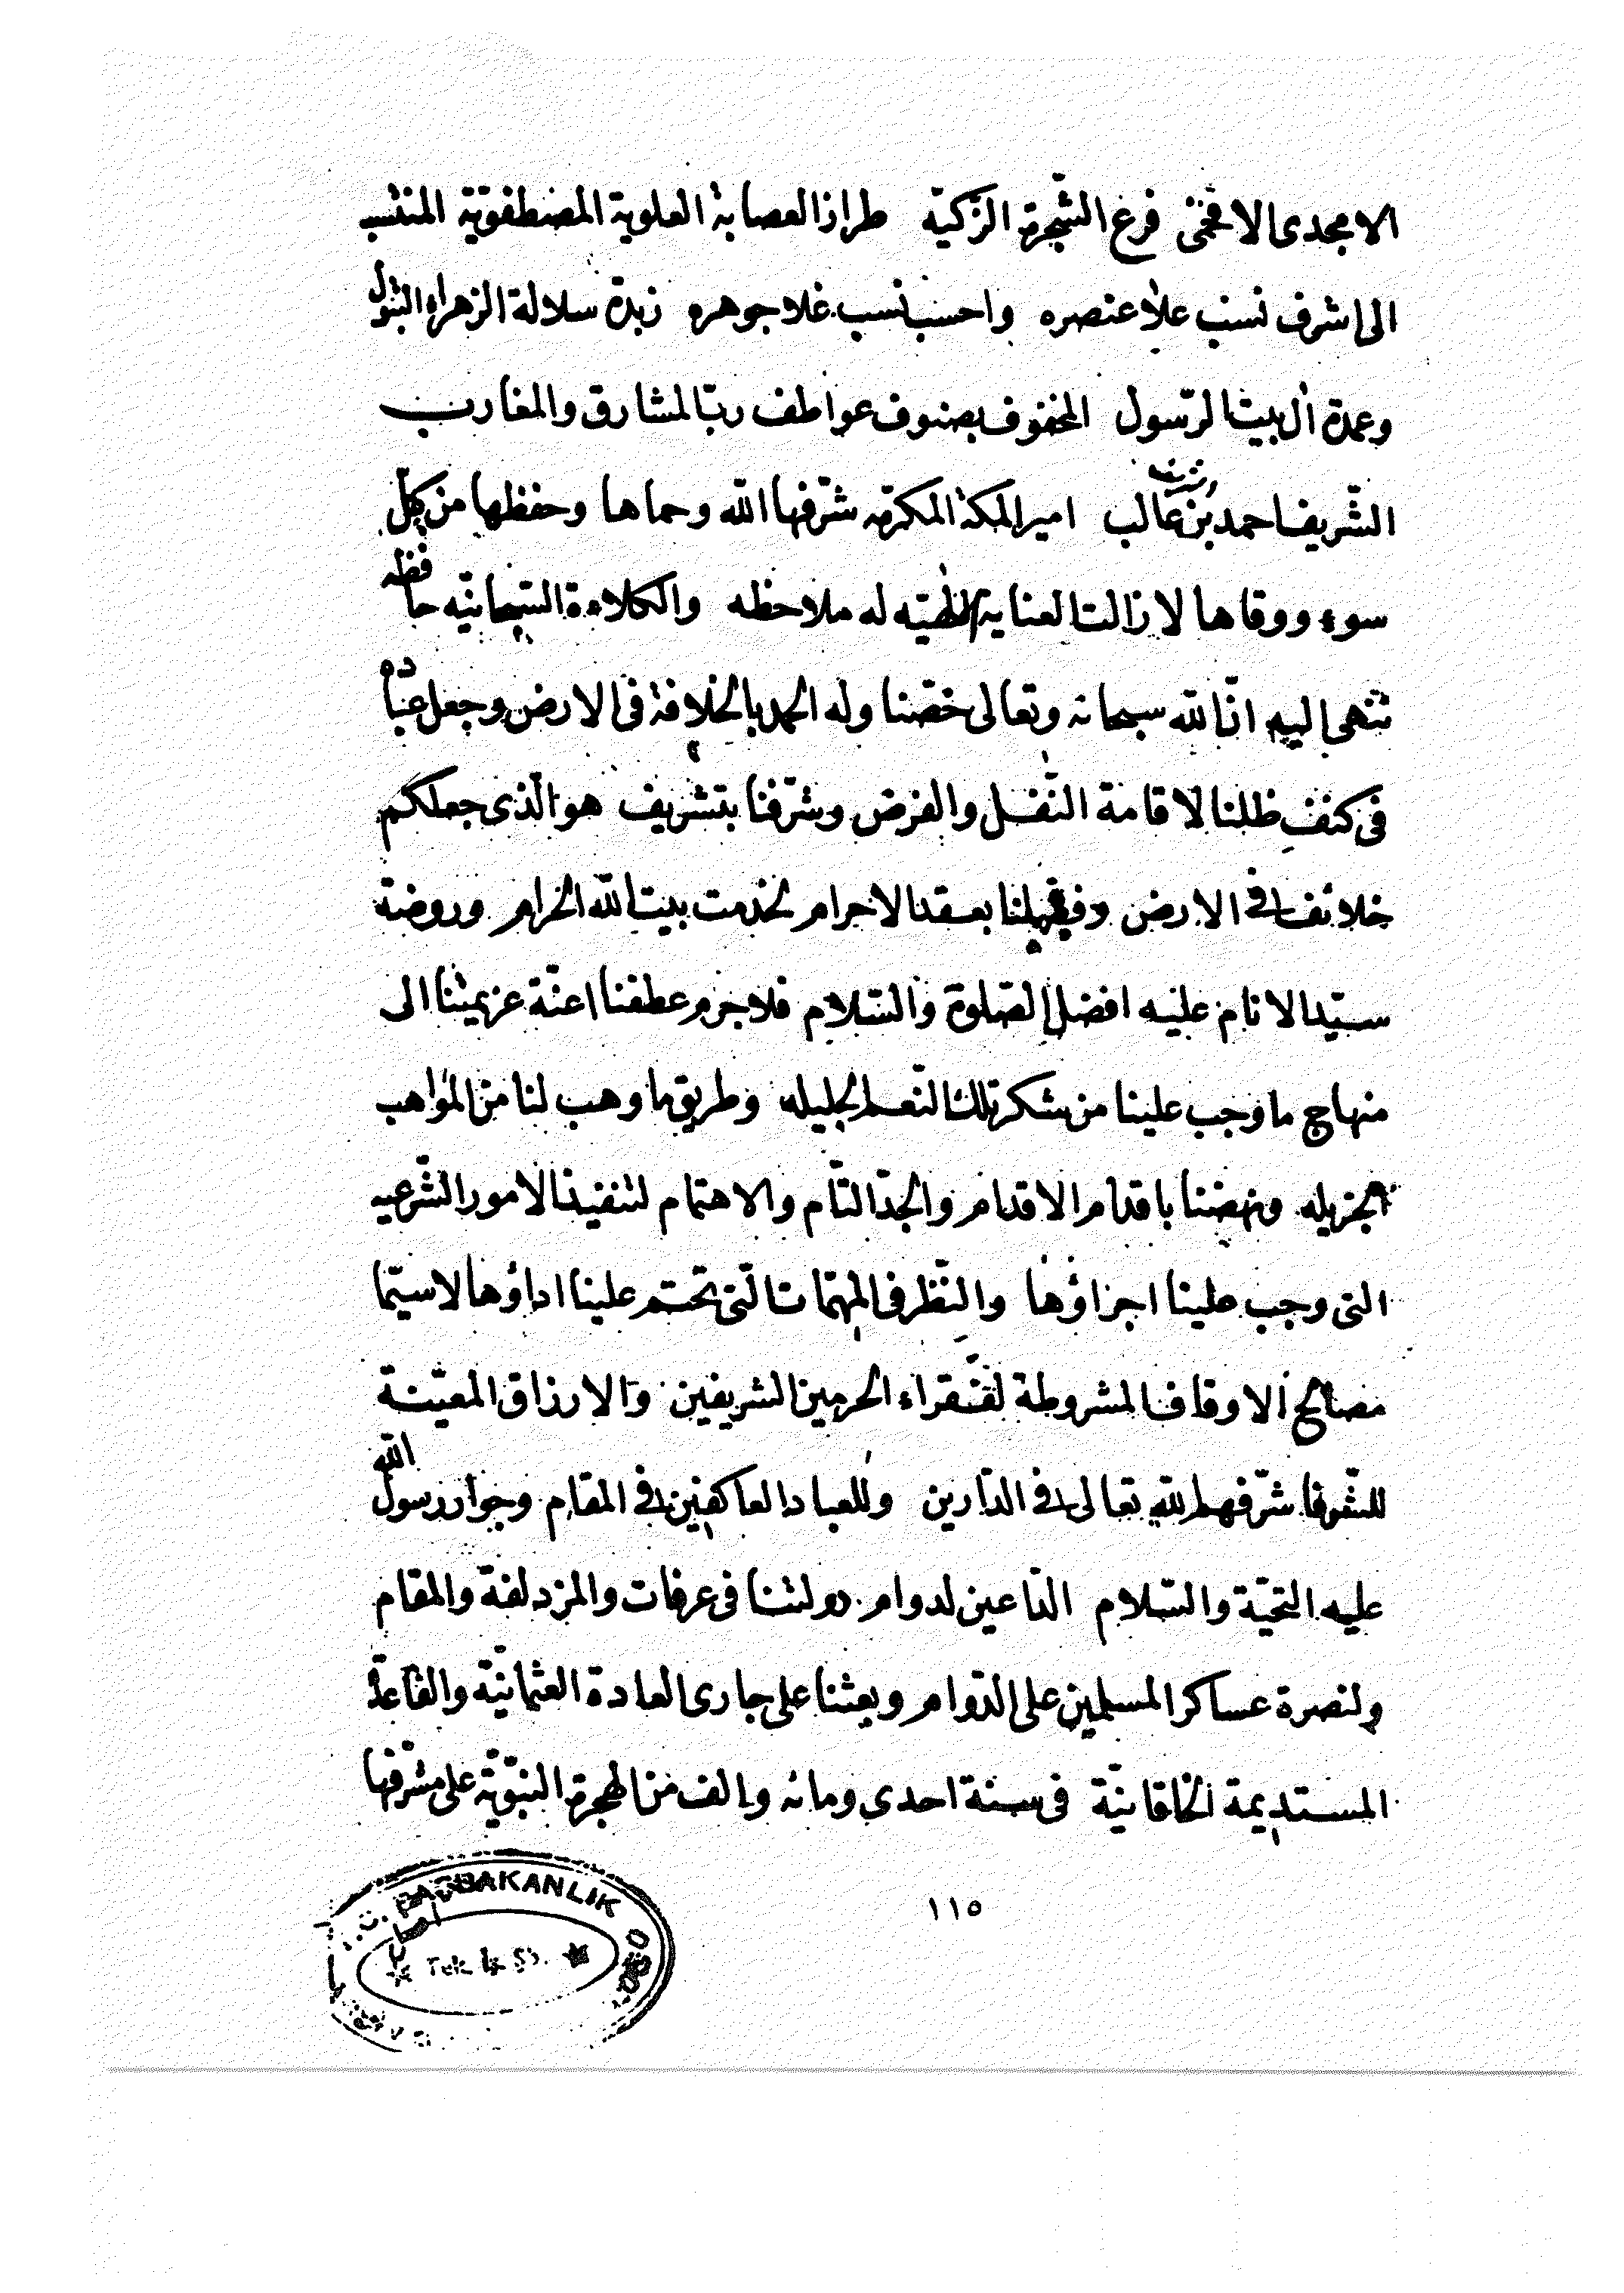 الامجدى الافخمى فرع الشّجرة الزّكيّه طراز العصابة العلوية المصطفوية المنتسب
الى اشرف نسب علا عنصره واحسب نسب غلا جوهره زبدة سلالة الزهراء البتول
وعمدة ال بيت الرّسول المحفوف بصنوف عواطف ربّ المشارق والمغارب
الشّريف احمد بن غالب وشريف امير المكة المكرّمه شرّفها اللّه وحماها وحفظها من كلّ
سوء ووقاها لا زالت العناية له ملاحظه والكلاءة السّبحانيّه حافظه
ننهى اليه انّ اللّه سبحانه وتعالى خصّنا وله الحمد بالخلافة فى الارض وجعل عباده
فى كنف ظلنا لاقامة النّفل والفرض وشرّفنا بتشريف هو الّذى جعلكم
خلائف فى الارض بعقد الاحرام لخدمت بيت اللّه الحرام وروضة
سيّد الانام عليه افضل الصّلوة والسّلام فلا جرم عطفنا اعنّة عزيمتنا الى
منهاج ما وجب علينا من شكر تلك النّعم الجليله وطريق ما وهب لنا من المواهب
الجزيله ونهضنا باقدام الاقدام والجدّ التّام والاهتمام لتنفيذ الامور الشّرعيه
التى وجب علينا اجراؤها والنّظر فى المهمّات الّتى تحتم علينا اداؤها لا سيّما
مصالح الاوقاف المشروطة لفقراء الحرمين الشريفين والارزاق المعيّنة
للشّرفا شرّفهم اللّه تعالى فى الدّارين وللعباد العاكفين فى المقام وجوار رسول اللّه
عليه التّحيّة والسّلام الدّاعين لدوام دولتنا فى عرفات والمزدلفة والمقام
ولنصرة عساكر المسلمين على الدّوام وبعثنا على جارى العادة العثمانيّة والقاعدة
المستديمة الخاقانيّة فى سنة احدى ومائه والف من الهجرة النبويّة على مشرفها
١١٥
BAŞBAKANLIK